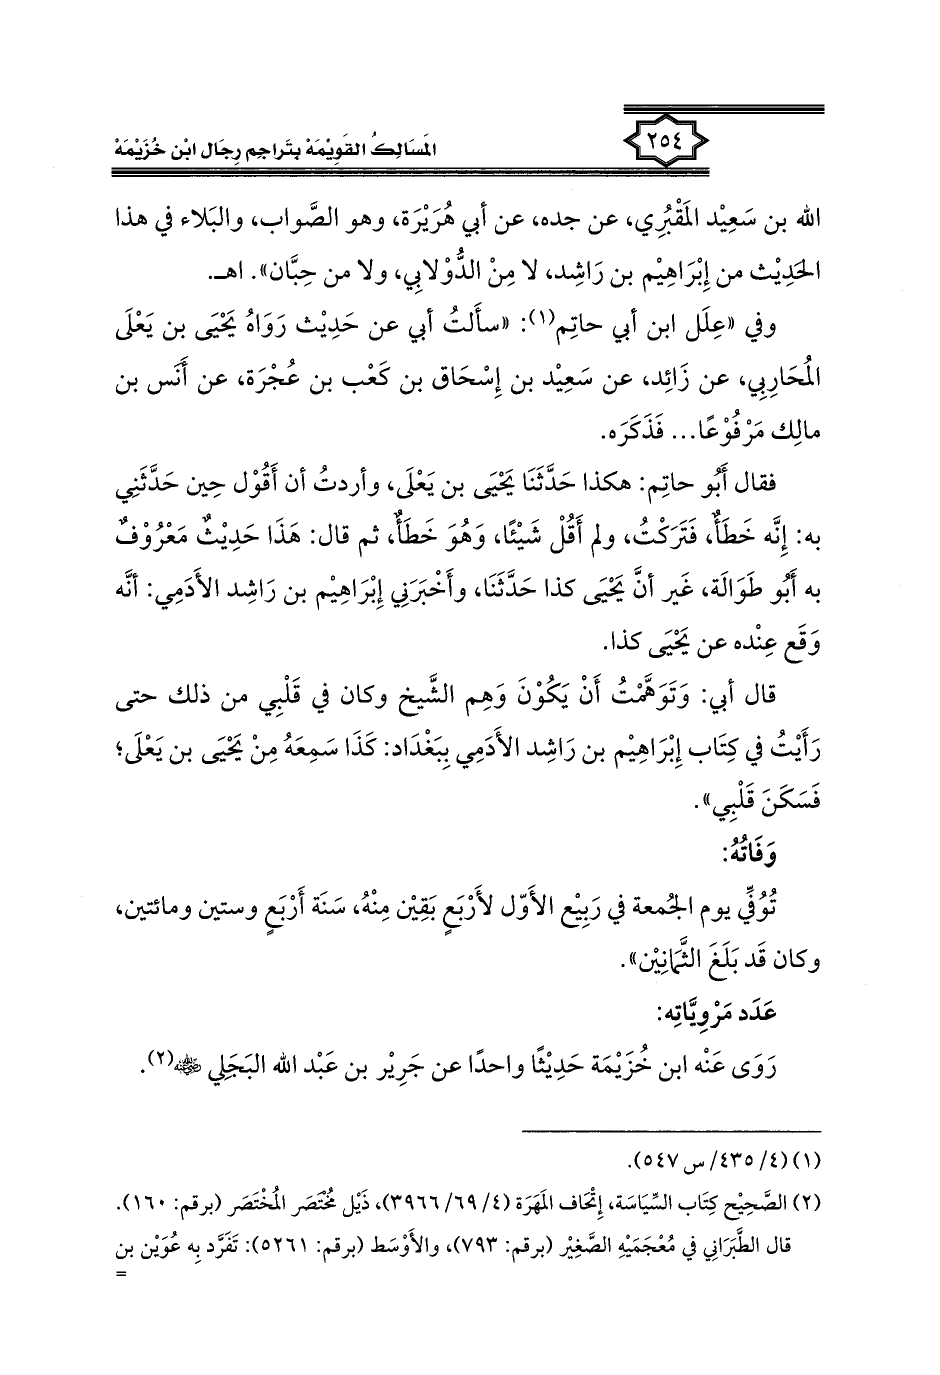 ٢٥٤
المَسَالِكُ القَوِيْمَهْ بِتَراجِم رِجَال ابْن خُزَيْمَهْ
الله بن سَعِيْد المَقْبُرِي، عن جده، عن أبي هُرَيْرَة، وهو الصَّواب، والبَلاء في هذا
الحَدِيْث من إِبْرَاهِيْم بن رَاشِد، لا مِنْ الدُّوْلابي، ولا من حِبَّان». اهـ.
وفي «عِلَل ابن أبي حاتِم(١): «سأَلتُ أبي عن حَدِيْث رَوَاهُ يَحْيَى بن يَعْلَى
المُحَارِبِي، عن زَائِد، عن سَعِيْد بن إِسْحَاق بن كَعْب بن عُجْرَة، عن أَنَس بن
مالِك مَرْفُوْعًا... فَذَكَرَه.
فقال أَبُو حاتِم: هكذا حَدَّثَنَا يَحْيَى بن يَعْلَى، وأردتُ أن أَقُوْل حِين حَدَّثَنِي
به: إِنَّه خَطَأٌ، فَتَرَكْتُ، ولم أَقُلْ شَيْئًا، وَهُوَ خَطَأٌ، ثم قال: هَذَا حَدِيْثٌ مَعْرُوْفٌ
به أَبُو طَوَالَة، غَير أنَّ يَحْيَى كذا حَدَّثَنَا، وأَخْبَرَنِي إِبْرَاهِيْم بن رَاشِد الأَدَمِي: أنَّه
وَقَع عِنْده عن يَحْيَى كذا.
قال أبي: وَتَوَهَّمْتُ أَنْ يَكُوْنَ وَهِم الشَّيخ وكان في قَلْبِي من ذلك حتى
رَأَيْتُ في كِتَاب إِبْرَاهِيْم بن رَاشِد الأَدَمِي بِبَغْدَاد: كَذَا سَمِعَهُ مِنْ يَحْيَى بن يَعْلَى؛
فَسَكَنَ قَلْبِي».
وَفَاتُهُ:
تُوُفِّي يوم الجُمعة في رَبِيْع الأَوّل لأَرْبَعٍ بَقِيْن مِنْهُ، سَنَة أَرْبَعٍ وستين ومائتين،
وكان قَد بَلَغَ الثَّمَانِيْن».
عَدَد مَرْوِيَّاتِه:
رَوَى عَنْه ابن خُزَيْمَة حَدِيْثًا واحدًا عن جَرِيْر بن عَبْد الله البَجَلي ﵁(٢).
(١) (٤/ ٤٣٥/ س ٥٤٧).
(٢) الصَّحِيْح كِتَاب السِّيَاسَة، إِتْحَاف المَهَرَة (٤/ ٦٩/ ٣٩٦٦)، ذَيْل مُخْتَصَر المُخْتَصَر (برقم: ١٦٠).
قال الطَّبَرَاني في مُعْجَمَيْهِ الصَّغِيْر (برقم: ٧٩٣)، والأَوْسَط (برقم: ٥٢٦١): تَفَرَّد بِه عُوَيْن بن
=